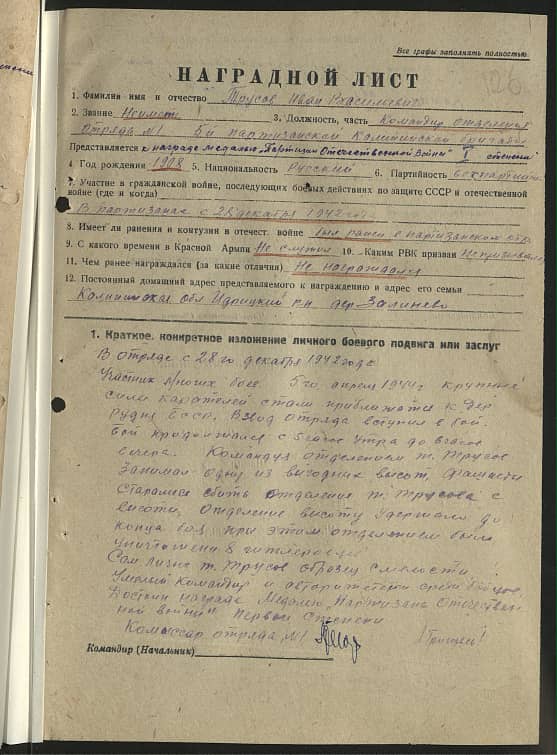 Все графы заполнять полностью
126
НАГРАДНОЙ ЛИСТ
1. Фамилия имя и отчество Трусов Иван Василиевич
2. Звание Не имеет 3. Должность, часть Командир отделения
отряда №1 5й партизанской Калининской бригады
Представляется к награде медалью „Партизан Отечественной Войны" I степени
4. Год рождения 1908 5. Национальность русский 6. Партийность беспартийн
7. Участие в гражданской войне, последующих боевых действиях по защите СССР и отечественной
войне (где и когда)
В партизанах с 28 декабря 1942 г.
8. Имеет ли ранения и контузии в отечест. войне был ранен в партизанском отр.
9. С какого времени в Красной Армии Не служил 10. Каким РВК призван Не призывался
11. Чем ранее награждался (за какие отличия) Не награждался
12. Постоянный домашний адрес представляемого к награждению и адрес его семьи
Калининская обл Идрицкий р-н дер.
1. Краткое, конкретное изложение личного боевого подвига или заслуг
В отряде с 28го декабря 1942 года
Участник многих боев. 5го апреля 1944г крупные
силы карателей стали приближатся к дер
Рудня БССР. Взвод отряда вступил в бой.
Бой продолжался с утра до
вечера. Командуя отделением т. Трусов
занимал одну из выгодных высот, фашисты
старались сбить отделение т. Трусова с
висоты, Отделение высоту удержало до
конца боя при этом отделением было
уничтожено 8 гитлеровцев
Сам лично т. Трусов образец смелости,
Умелый командир и авторитетен среди бойцов,
Достоин награде Медалью „Партизана Отечествен-
ной войны" Первой Степени
Комиссар отряда №1 /Грищен/
Командир (Начальник)